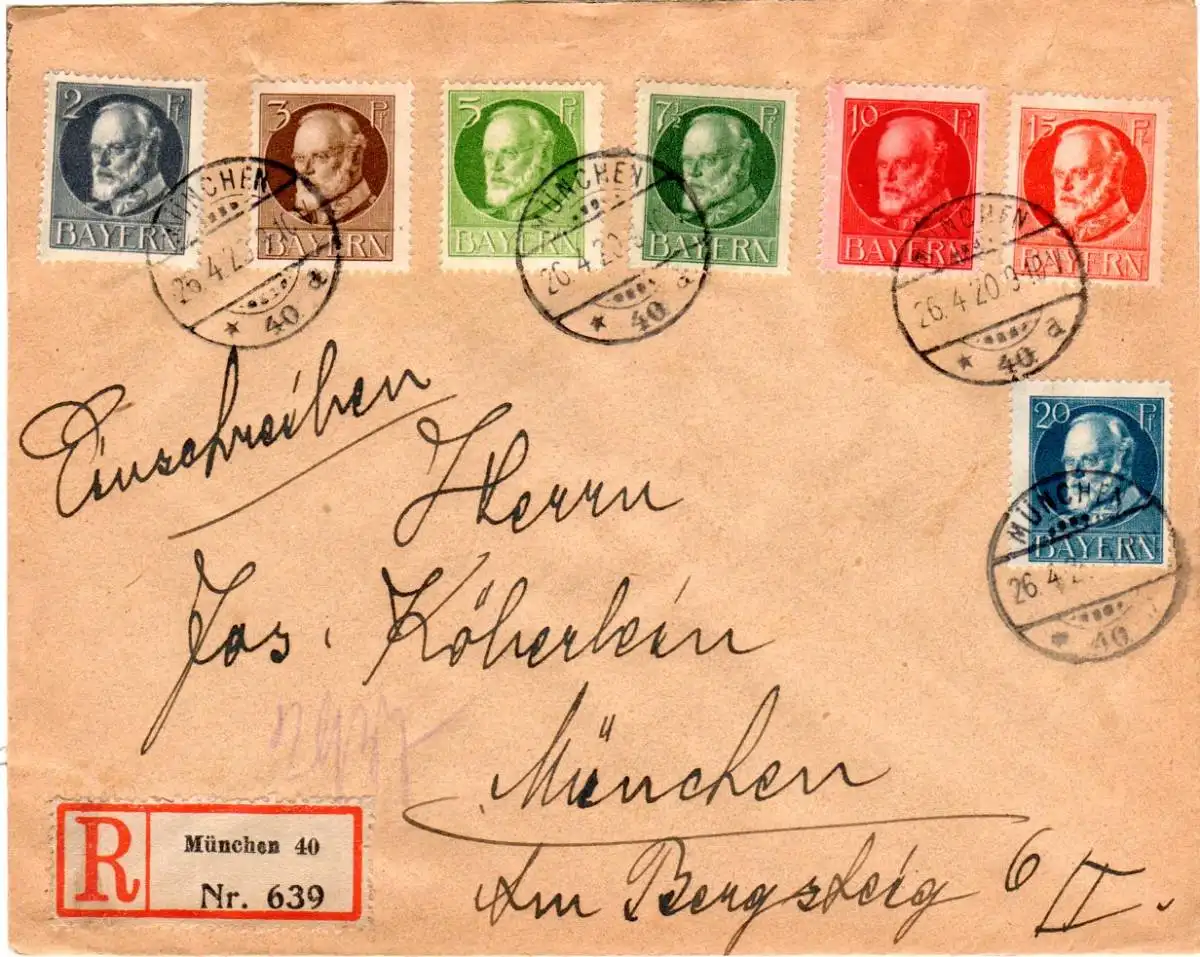 2 Pf BAYERN
3 Pf BAYERN
5 Pf BAYERN
7½ Pf BAYERN
10 Pf BAYERN
15 Pf BAYERN
MÜNCHEN
26.4.20
* 40 a
MÜNCHEN
26.4.20
* 40 a
MÜNCHEN
26.4.20 9-10
* 40 a
20 Pf BAYERN
MÜNCHEN
26.4.2
* 40
Einschreiben
Herrn
Jos. Köberlein
München
Am Bergsteig 6
II.
R
München 40
Nr. 639